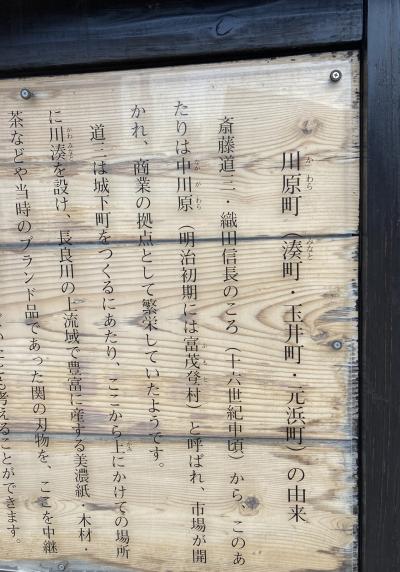 川原町（湊町・玉井町・元浜町）の由来
斎藤道三・織田信長のころ（十六世紀中頃）から、このあ
たりは中川原（明治初期には富茂登村）と呼ばれ、市場が開
かれ、商業の拠点として繁栄していたようです。
道三は城下町をつくるにあたり、ここから上にかけての場所
に川湊を設け、長良川の上流域で豊富に産する美濃紙・木材・
茶などや当時のブランド品であった関の刃物を、ここを中継
も考えることができます。